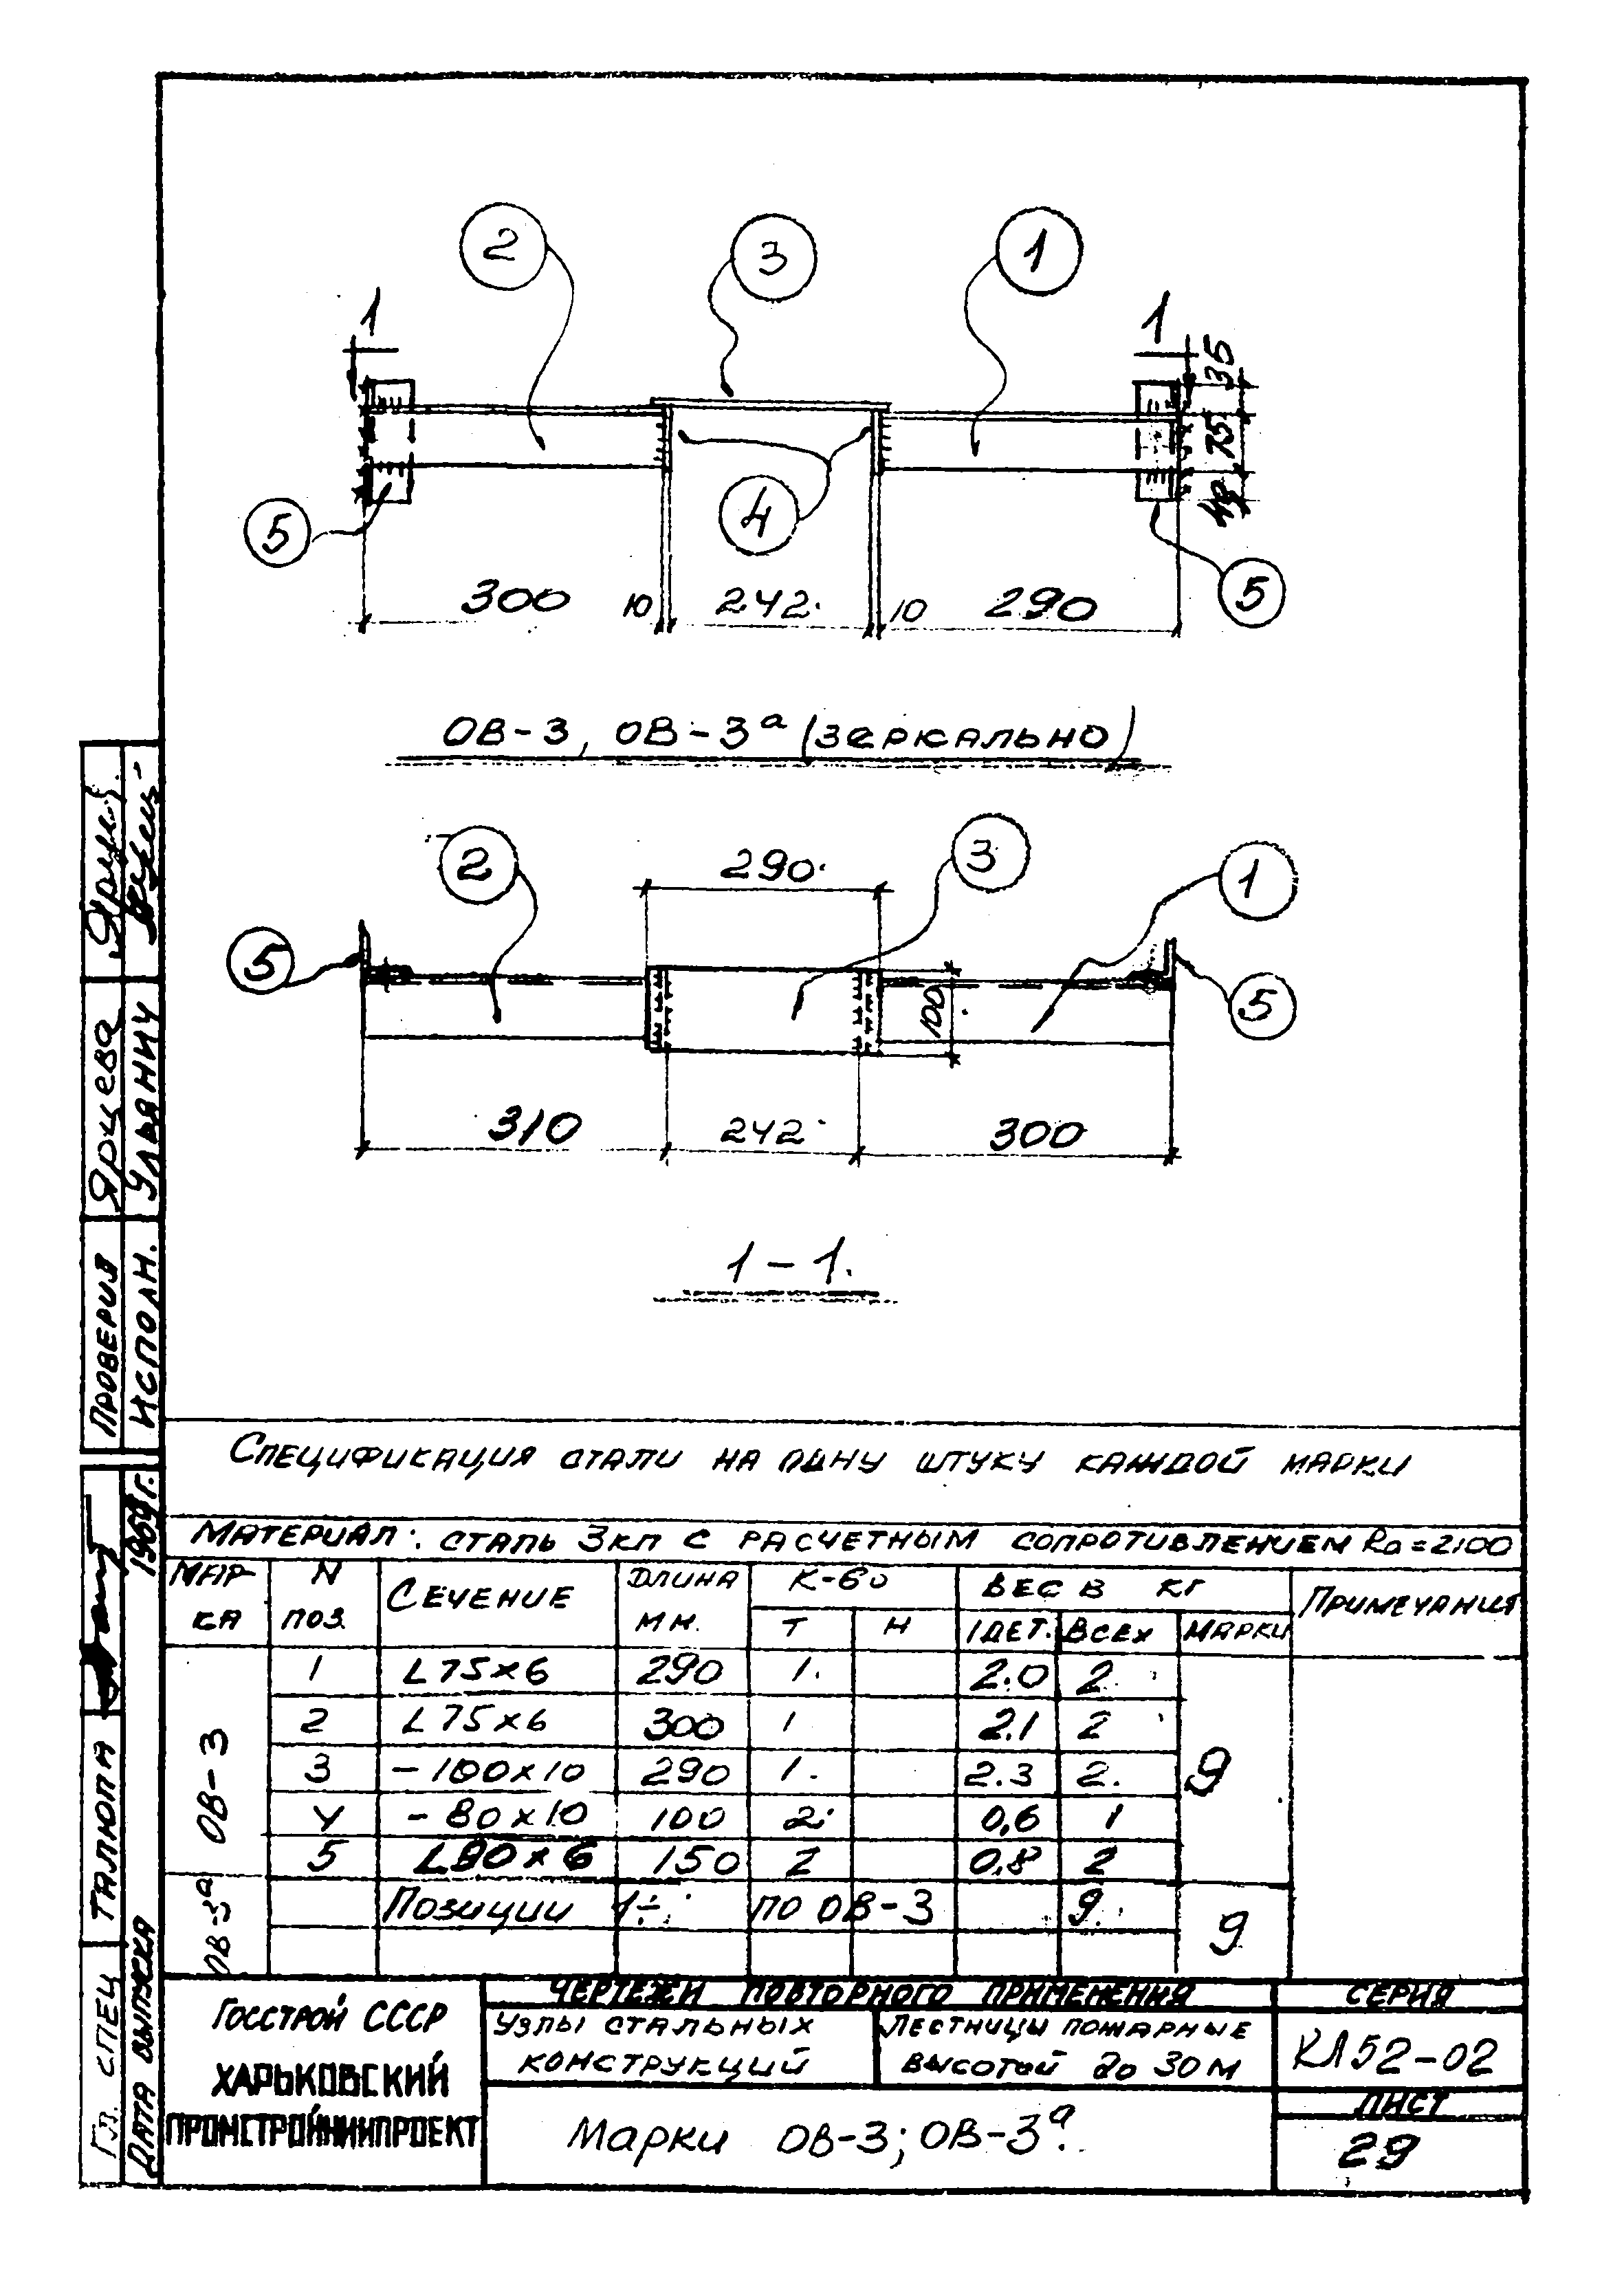 2
3
1
1
1
35
75
40
5
4
5
300 10 242 10 290
ОВ-3, ОВ-3а (зеркально)
2
290
3
1
5
5
100
310 242 300
1-1.
Спецификация стали на одну штуку каждой марки
Материал: сталь 3кп с расчетным сопротивлением Ra=2100
Мар-
ка
N
поз.
Сечение
Длина
мм.
К-во
Т Н
Вес в кг
1дет. Всех Марки
Примечания
ОВ-3
1 L 75×6 290 1. 2.0 2
2 L 75×6 300 1 2.1 2
3 - 100×10 290 1. 2.3 2.
4 - 80×10 100 2 0,6 1
5 L 90×6 150 2 0,8 2
9
ОВ-3а
Позиции 1÷ по ОВ-3 9.
9
Госстрой СССР
Харьковский
Промстройниипроект
Чертежи повторного применения
Узлы стальных
конструкций
Лестницы пожарные
высотой до 30 м
Серия
КЛ52-02
Лист
29
Марки ОВ-3; ОВ-3а.
Проверил Ярцева
Исполн. Ульянич
Гл. спец Талюпа
Дата выпуска 1969г.